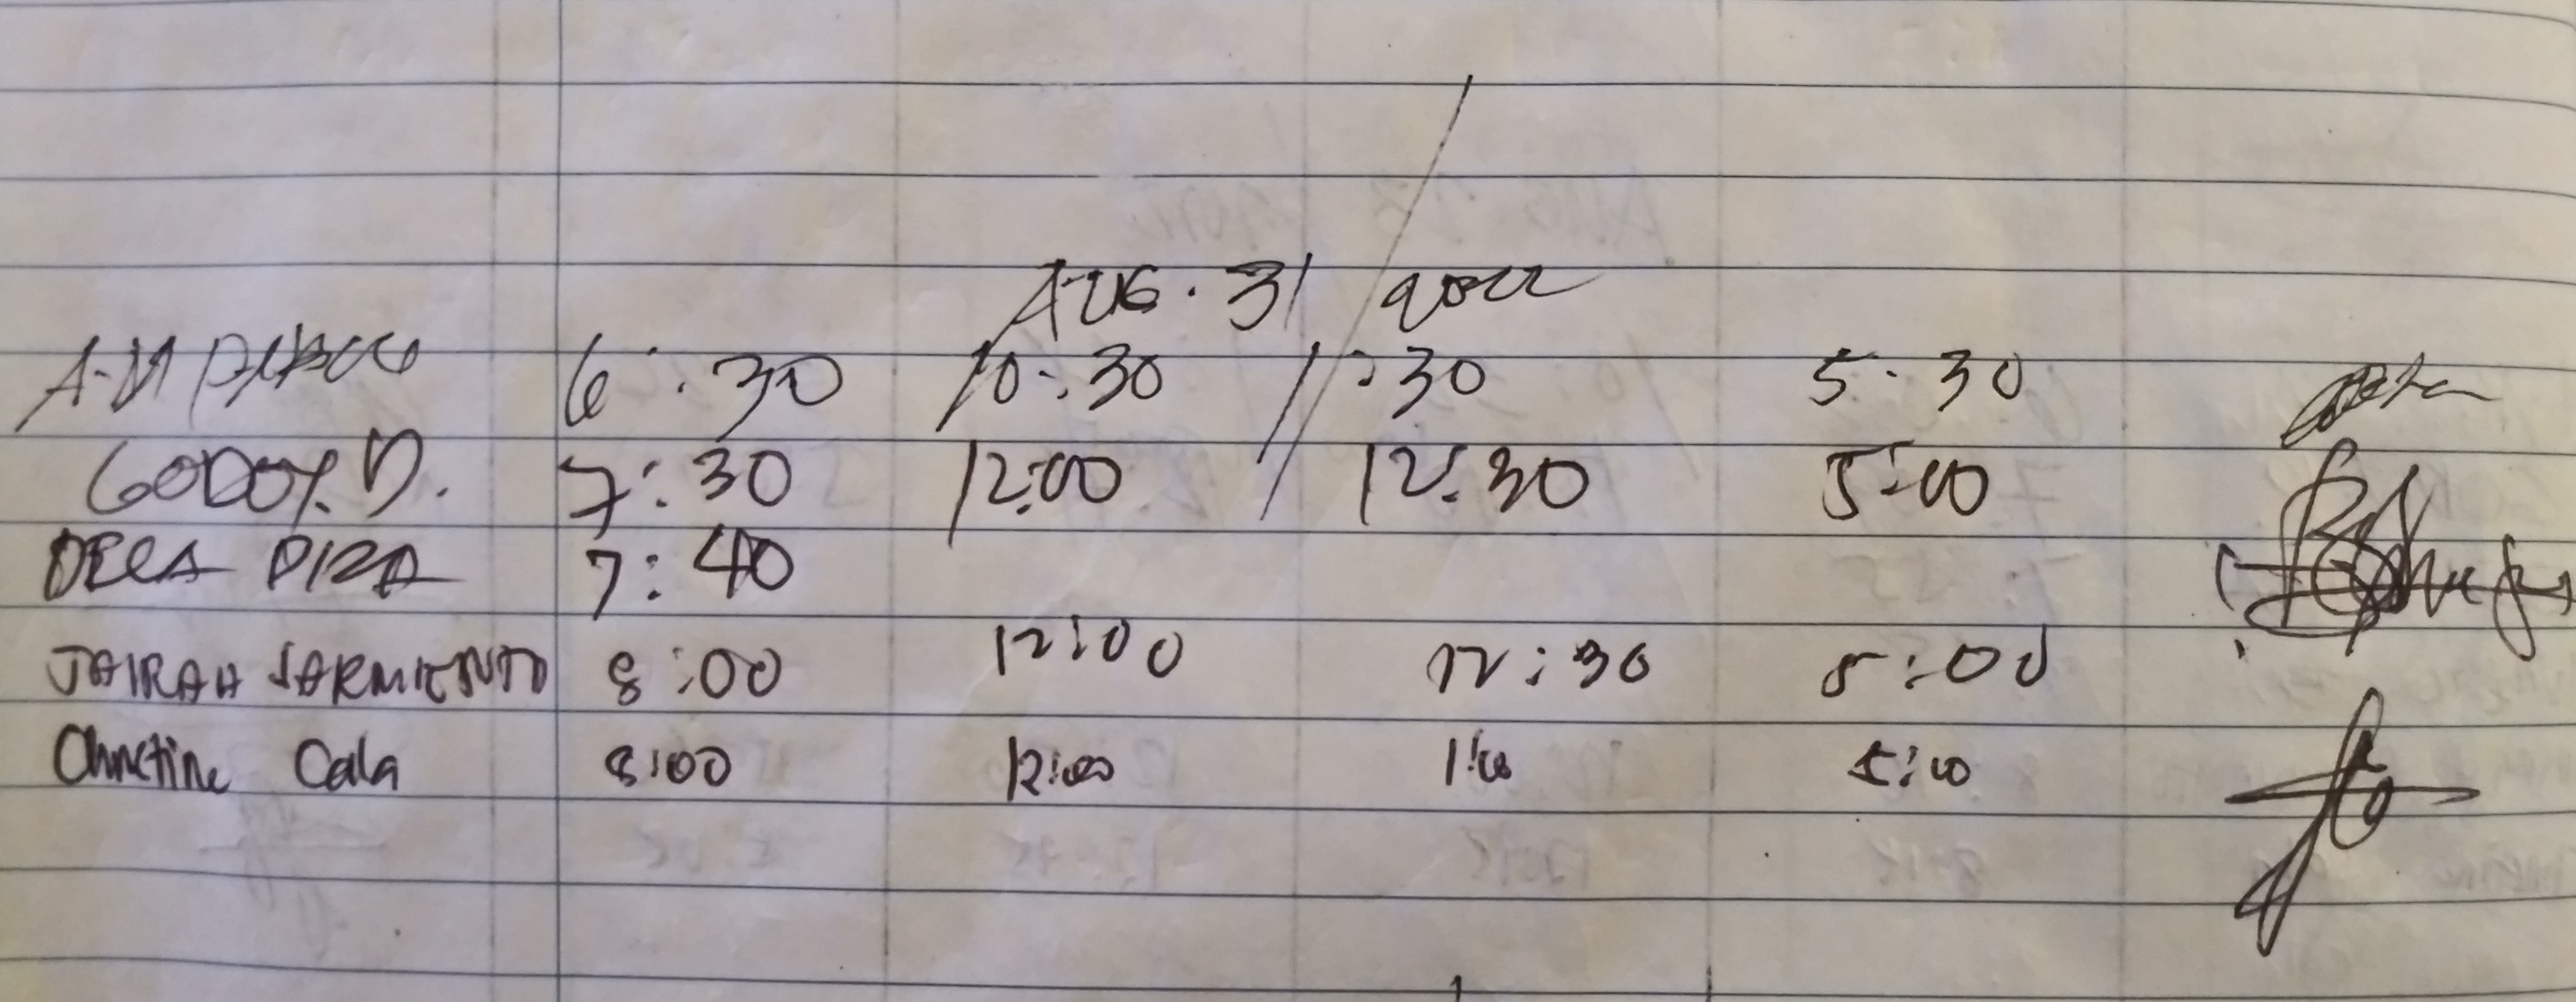 AUG. 31 2022
6:30 10:30 1:30 5:30
GODOY. D. 7:30 12:00 12:30 5:00
DELA PIZA 7:40
JAIRAH SARMIENTO 8:00 12:00 12:30 5:00
Christine Cala 8:00 12:00 1:00 5:00